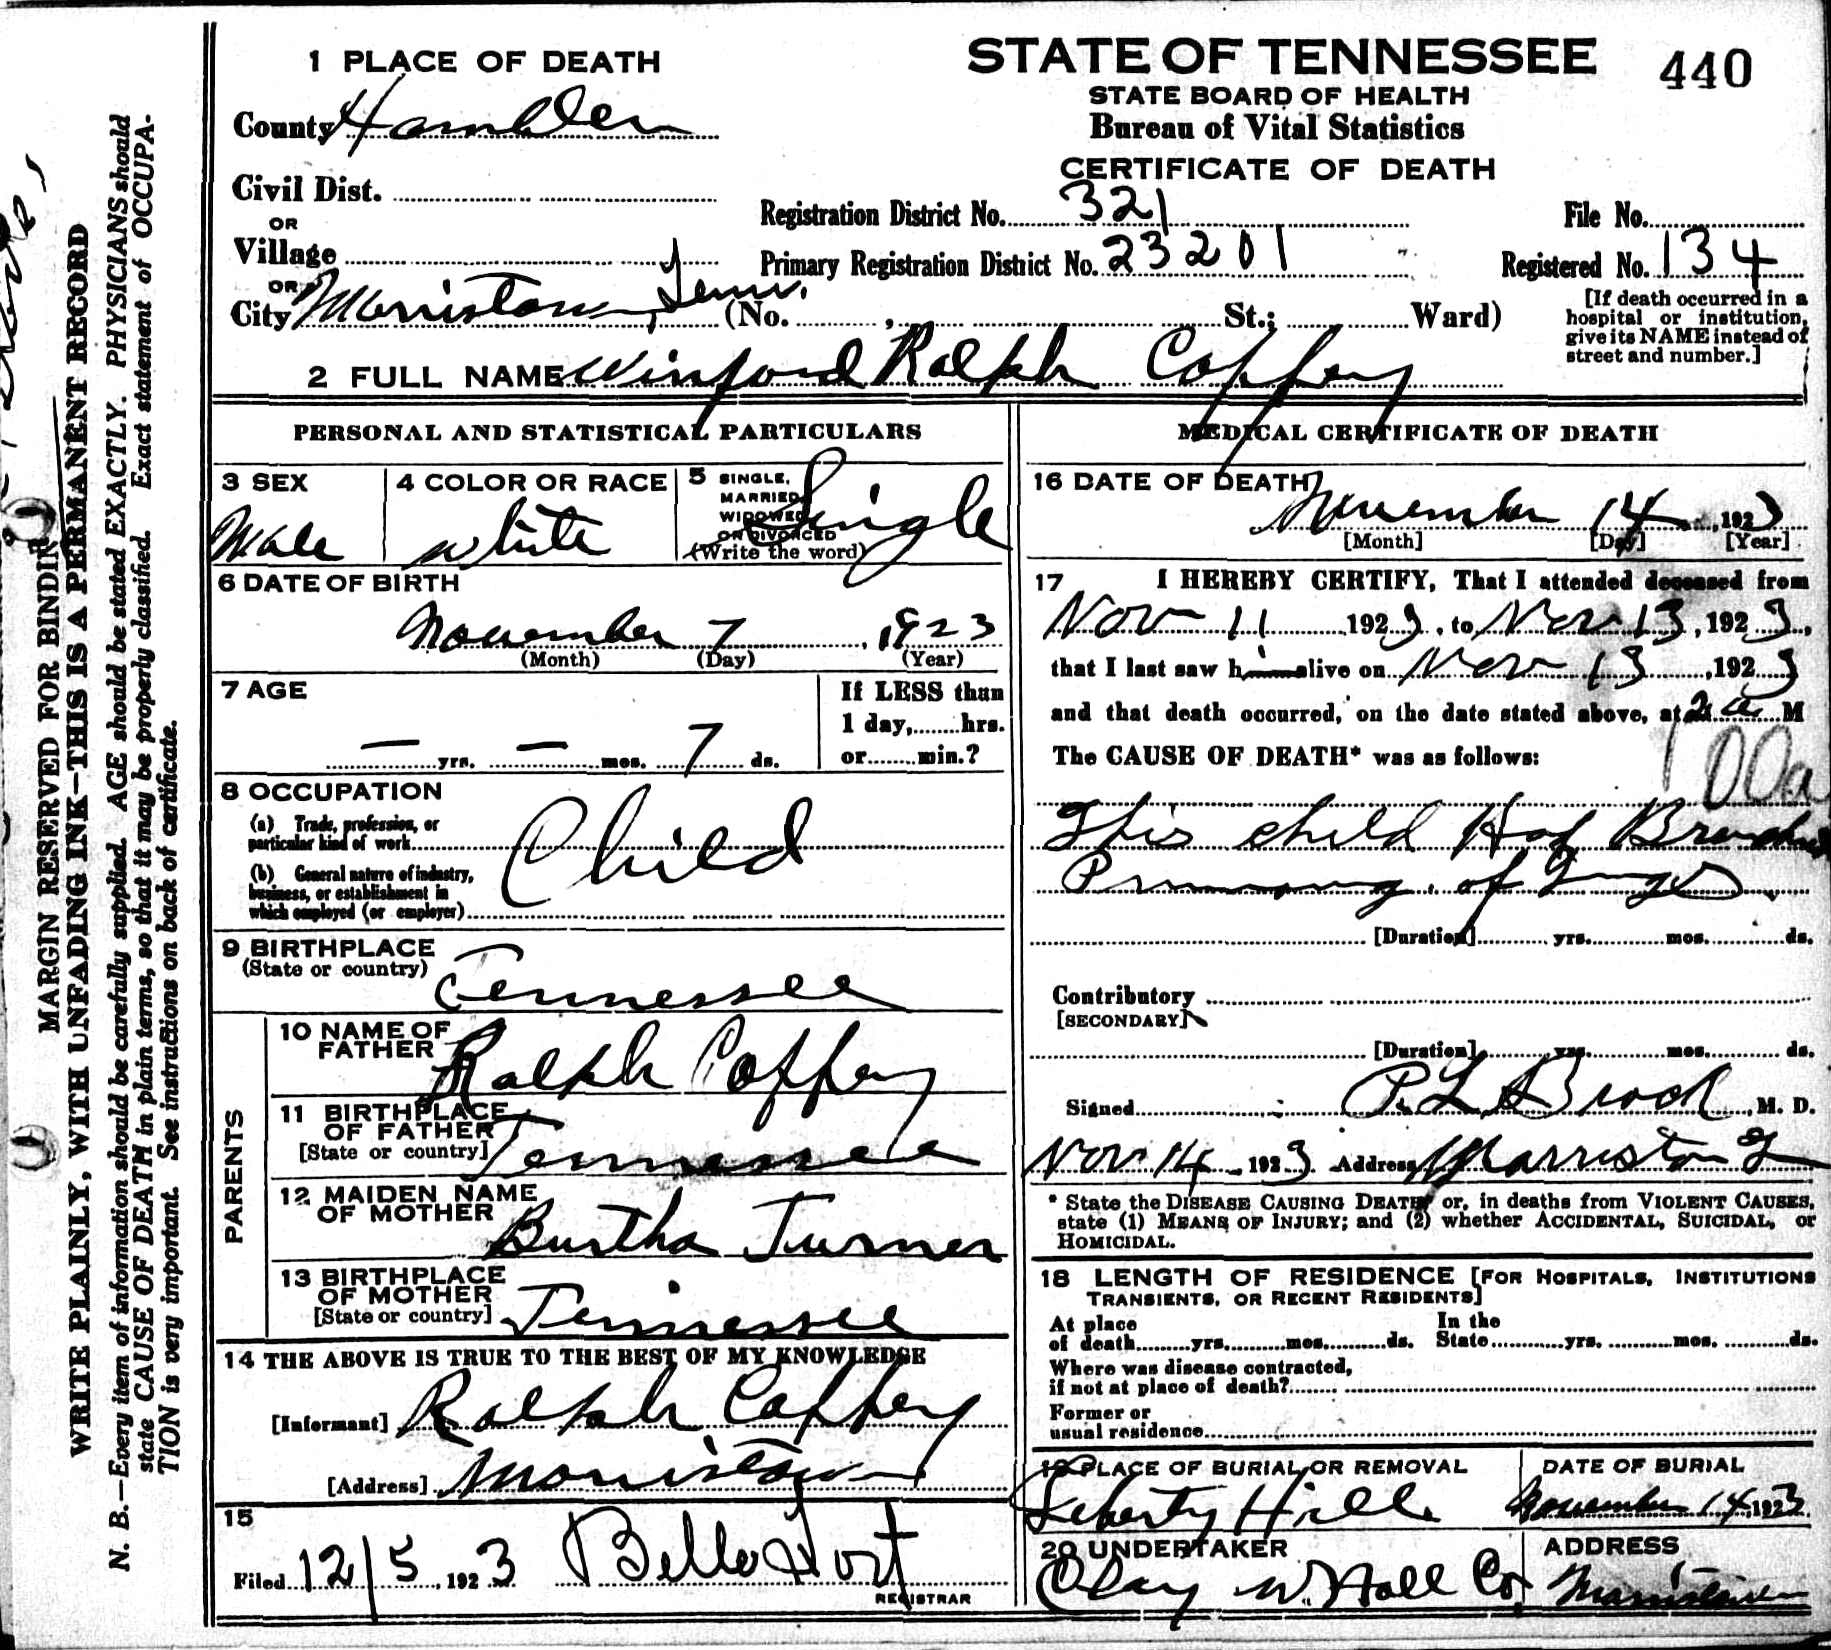 STATE OF TENNESSEE
STATE BOARD OF HEALTH
Bureau of Vital Statistics
CERTIFICATE OF DEATH
440
1 PLACE OF DEATH
County Hamblen
Civil Dist.
OR
Village
OR
City Morristown, Tenn.
(No. , St.; Ward)
Registration District No. 321
Primary Registration District No. 23201
File No.
Registered No. 134
[If death occurred in a
hospital or institution,
give its NAME instead of
street and number.]
2 FULL NAME Winford Ralph Coffey
PERSONAL AND STATISTICAL PARTICULARS
3 SEX
Male
4 COLOR OR RACE
white
5 SINGLE,
MARRIED
WIDOWED
OR DIVORCED
(Write the word)
Single
6 DATE OF BIRTH
November 7, 1923
(Month) (Day) (Year)
7 AGE
— yrs. — mos. 7 ds.
If LESS than
1 day, hrs.
or min.?
8 OCCUPATION
(a) Trade, profession, or
particular kind of work
(b) General nature of industry,
business, or establishment in
which employed (or employer)
Child
9 BIRTHPLACE
(State or country)
Tennessee
PARENTS
10 NAME OF
FATHER
Ralph Coffey
11 BIRTHPLACE
OF FATHER
[State or country]
Tennessee
12 MAIDEN NAME
OF MOTHER
Burtha Turner
13 BIRTHPLACE
OF MOTHER
[State or country]
Tennessee
14 THE ABOVE IS TRUE TO THE BEST OF MY KNOWLEDGE
[Informant] Ralph Coffey
[Address] Morristown
15
Filed 12/5, 1923
REGISTRAR
MEDICAL CERTIFICATE OF DEATH
16 DATE OF DEATH
November 14, 1923
[Month] [Day] [Year]
17 I HEREBY CERTIFY, That I attended deceased from
Nov 11 1923, to Nov 13, 1923,
that I last saw him alive on Nov 13, 1923
and that death occurred, on the date stated above, at 2 a M
The CAUSE OF DEATH* was as follows:
100a
This child Had
of Lungs
[Duration] yrs. mos. ds.
Contributory
[SECONDARY]
[Duration] yrs. mos. ds.
Signed P. L. Brock, M. D.
Nov 14, 1923 Address Morristown T
* State the DISEASE CAUSING DEATH or, in deaths from VIOLENT CAUSES,
state (1) MEANS OF INJURY; and (2) whether ACCIDENTAL, SUICIDAL, or
HOMICIDAL.
18 LENGTH OF RESIDENCE [FOR HOSPITALS, INSTITUTIONS
TRANSIENTS, OR RECENT RESIDENTS]
At place
of death yrs. mos. ds.
In the
State yrs. mos. ds.
Where was disease contracted,
if not at place of death?
Former or
usual residence
19 PLACE OF BURIAL OR REMOVAL
Liberty Hill
DATE OF BURIAL
November 14, 1923
20 UNDERTAKER
Clay W. Hall Co.
ADDRESS
Morristown
MARGIN RESERVED FOR BINDING
WRITE PLAINLY, WITH UNFADING INK—THIS IS A PERMANENT RECORD
N. B.—Every item of information should be carefully supplied. AGE should be stated EXACTLY. PHYSICIANS should
state CAUSE OF DEATH in plain terms, so that it may be properly classified. Exact statement of OCCUPA-
TION is very important. See instructions on back of certificate.